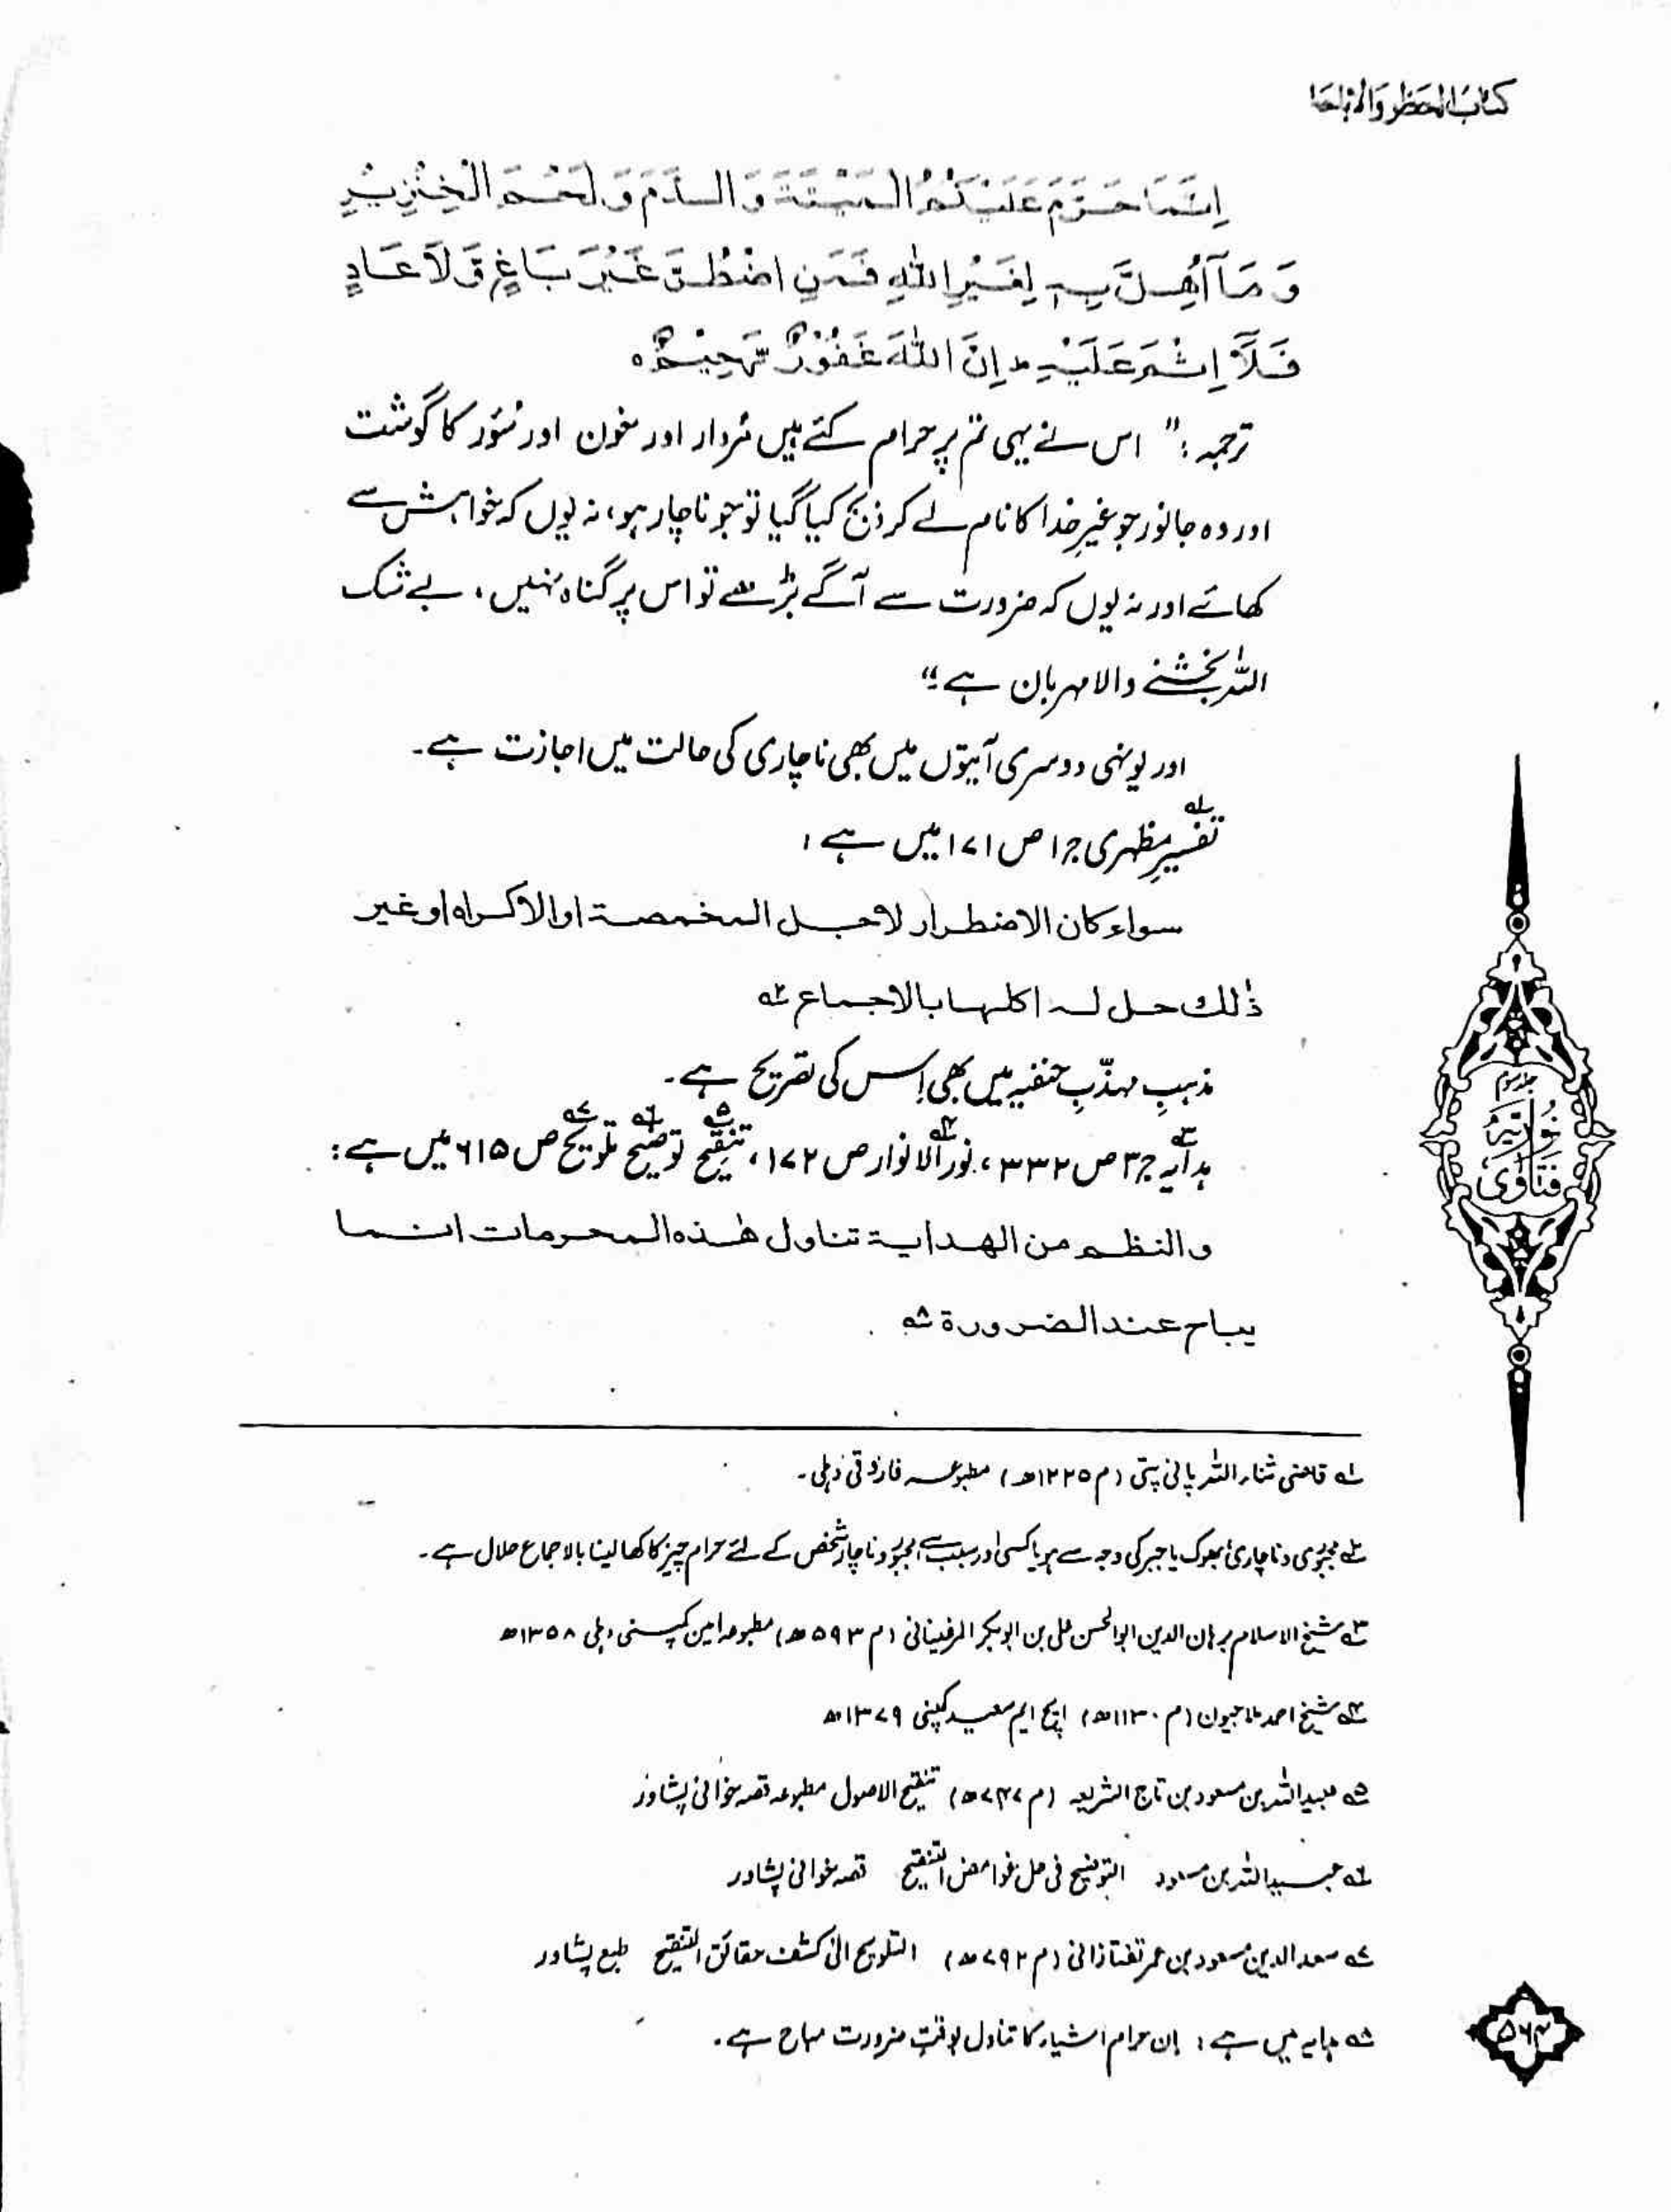 کتاب الحظر والاباحۃ
اِنَّمَا حَرَّمَ عَلَیْکُمُ الْمَیْتَۃَ وَالدَّمَ وَلَحْمَ الْخِنْزِیْرِ
وَمَآ اُھِلَّ بِہٖ لِغَیْرِ اللّٰہِ فَمَنِ اضْطُرَّ غَیْرَ بَاغٍ وَّلَا عَادٍ
فَلَآ اِثْمَ عَلَیْہِ ط اِنَّ اللّٰہَ غَفُوْرٌ رَّحِیْمٌ ہ
ترجمہ : " اس نے یہی تم پر حرام کئے ہیں مُردار اور خون اور سُؤر کا گوشت
اور وہ جانور جو غیرِ خدا کا نام لے کر ذبح کیا گیا تو جو ناچار ہو، نہ یوں کہ خواہش سے
کھائے اور نہ یوں کہ ضرورت سے آگے بڑھے تو اس پر گناہ نہیں، بے شک
اللہ بخشنے والا مہربان ہے ۔"
اور یونہی دوسری آیتوں میں بھی ناچاری کی حالت میں اجازت ہے۔
تفسیرِ مظہری ۱؎ ج ۱ ص ۱۷۱ میں ہے :
سواء کان الاضطرار لاجل المخمصۃ او الاکراہ او غیر
ذٰلک حل لہ اکلہا بالاجماع ۲؎
مذہبِ مہذّبِ حنفیہ میں بھی اِس کی تصریح ہے۔
ہدایہ ۳؎ ج ۳ ص ۳۳۲، نورالانوار ۴؎ ص ۱۷۲، تنقیح ۵؎ توضیح ۶؎ تلویح ۷؎ ص ۶۱۵ میں ہے :
والنظم من الھدایۃ تناول ھٰذہ المحرمات انما
یباح عند الضرورۃ ۸؎
جلد سوم
فتاوٰی نُوریّہ
۱؎ قاضی ثناء اللہ پانی پتی (م ۱۲۲۵ھ) مطبوعہ فاروقی دہلی۔
۲؎ مجبوری و ناچاری بھوک یا جبر کی وجہ سے ہو یا کسی اور سبب سے مجبور و ناچار شخص کے لئے حرام چیز کا کھا لینا بالاجماع حلال ہے۔
۳؎ شیخ الاسلام برہان الدین ابوالحسن علی بن ابوبکر المرغینانی (م ۵۹۳ھ) مطبوعہ امین کمپنی دہلی ۱۳۵۸ھ
۴؎ شیخ احمد ملا جیون (م ۱۱۳۰ھ) ایچ ایم سعید کمپنی ۱۳۷۹ھ
۵؎ عبیداللہ بن مسعود بن تاج الشریعہ (م ۷۴۷ھ) تنقیح الاصول مطبوعہ قصہ خوانی پشاور
۶؎ عبیداللہ بن مسعود التوضیح فی حل غوامض التنقیح قصہ خوانی پشاور
۷؎ سعد الدین مسعود بن عمر تفتازانی (م ۷۹۲ھ) التلویح الیٰ کشف حقائق التنقیح طبع پشاور
۸؎ ہدایہ میں ہے : اِن حرام اشیاء کا تناول بوقتِ ضرورت مباح ہے۔
۵۶۴